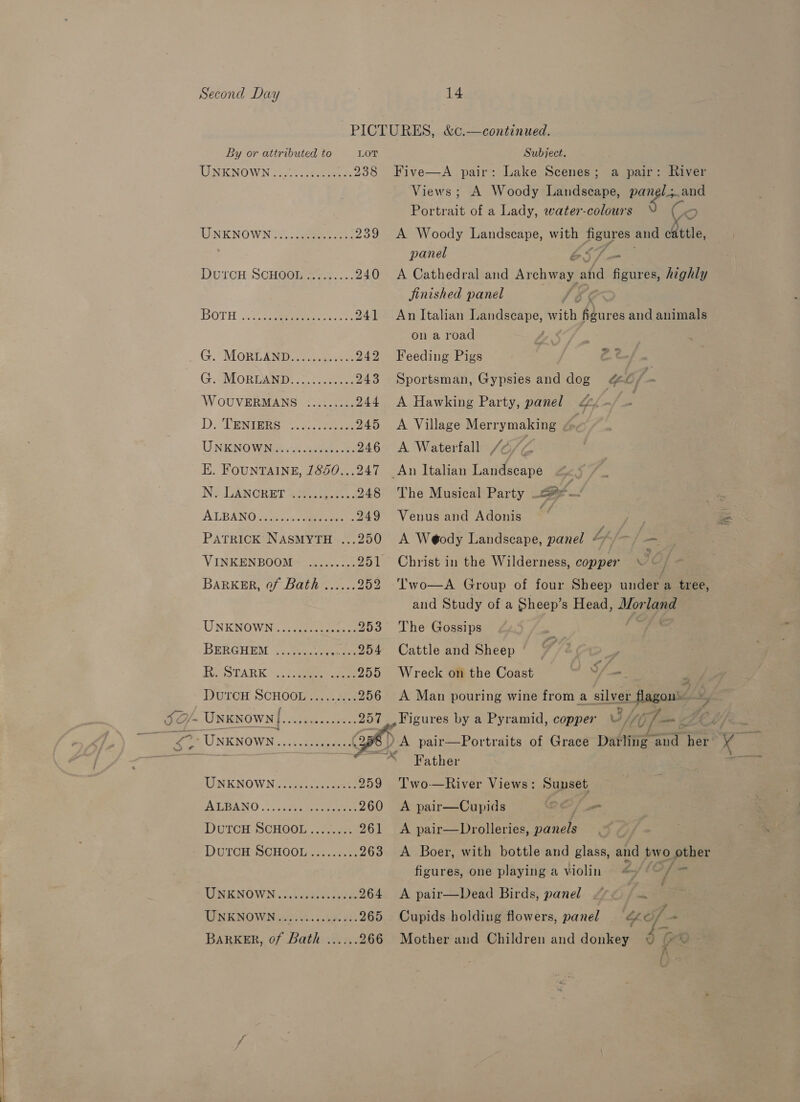 Second Day 14
PICTURES, &c.—continued.
By or attributed to LOT Subject.
UNKNOWN ..................238 Five—A pair: Lake Scenes; a pair: River
Views; A Woody Landscape, panel; and
Portrait of a Lady, water-colours
UNKNOWN ..................239 A Woody Landscape, with figures and cattle,
panel
DUTCH SCHOOL .........240 A Cathedral and Archway and figures, highly
finished panel
BOTH .....................241 An Italian Landscape, with figures and animals
on a road
G. MORLAND............242 Feeding Pigs
G. MORLAND............243 Sportsman, Gypsies and dog
WOUVERMANS .........244 A Hawking Party, panel
D. TENIERS ............245 A Village Merrymaking
UNKNOWN...............246 A Waterfall
E. FOUNTAINE, 1850...247 An Italian Landscape
N. LANCRET ............248 The Musical Party
ALBANO ..................249 Venus and Adonis
PATRICK NASMYTH ...250 A Woody Landscape, panel
VINKENBOOM .........251 Christ in the Wilderness, copper
BARKER, of Bath ......252 Two—A Group of four Sheep under a tree,
and Study of a Sheep's Head, Morland
UNKNOWN ...............253 The Gossips
BERGHEM ...............254 Cattle and Sheep
R. STARK ...............255 Wreck on the Coast
DUTCH SCHOOL.........256 A Man pouring wine from a silver flagon
UNKNOWN ...............257 Figures by a Pyramid, copper
UNKNOWN...............258 A pair—Portraits of Grace Darling and her
Father
UNKNOWN ...............259 Two—River Views: Sunset
ALBANO ..................260 A pair—Cupids
DUTCH SCHOOL ........ 261 A pair—Drolleries, panels
DUTCH SCHOOL .........263 A Boer, with bottle and glass, and two other
figures, one playing a violin
UNKNOWN...............264 A pair—Dead Birds, panel
UNKNOWN ...............265 Cupids holding flowers, panel
BARKER, of Bath ......266 Mother and Children and donkey